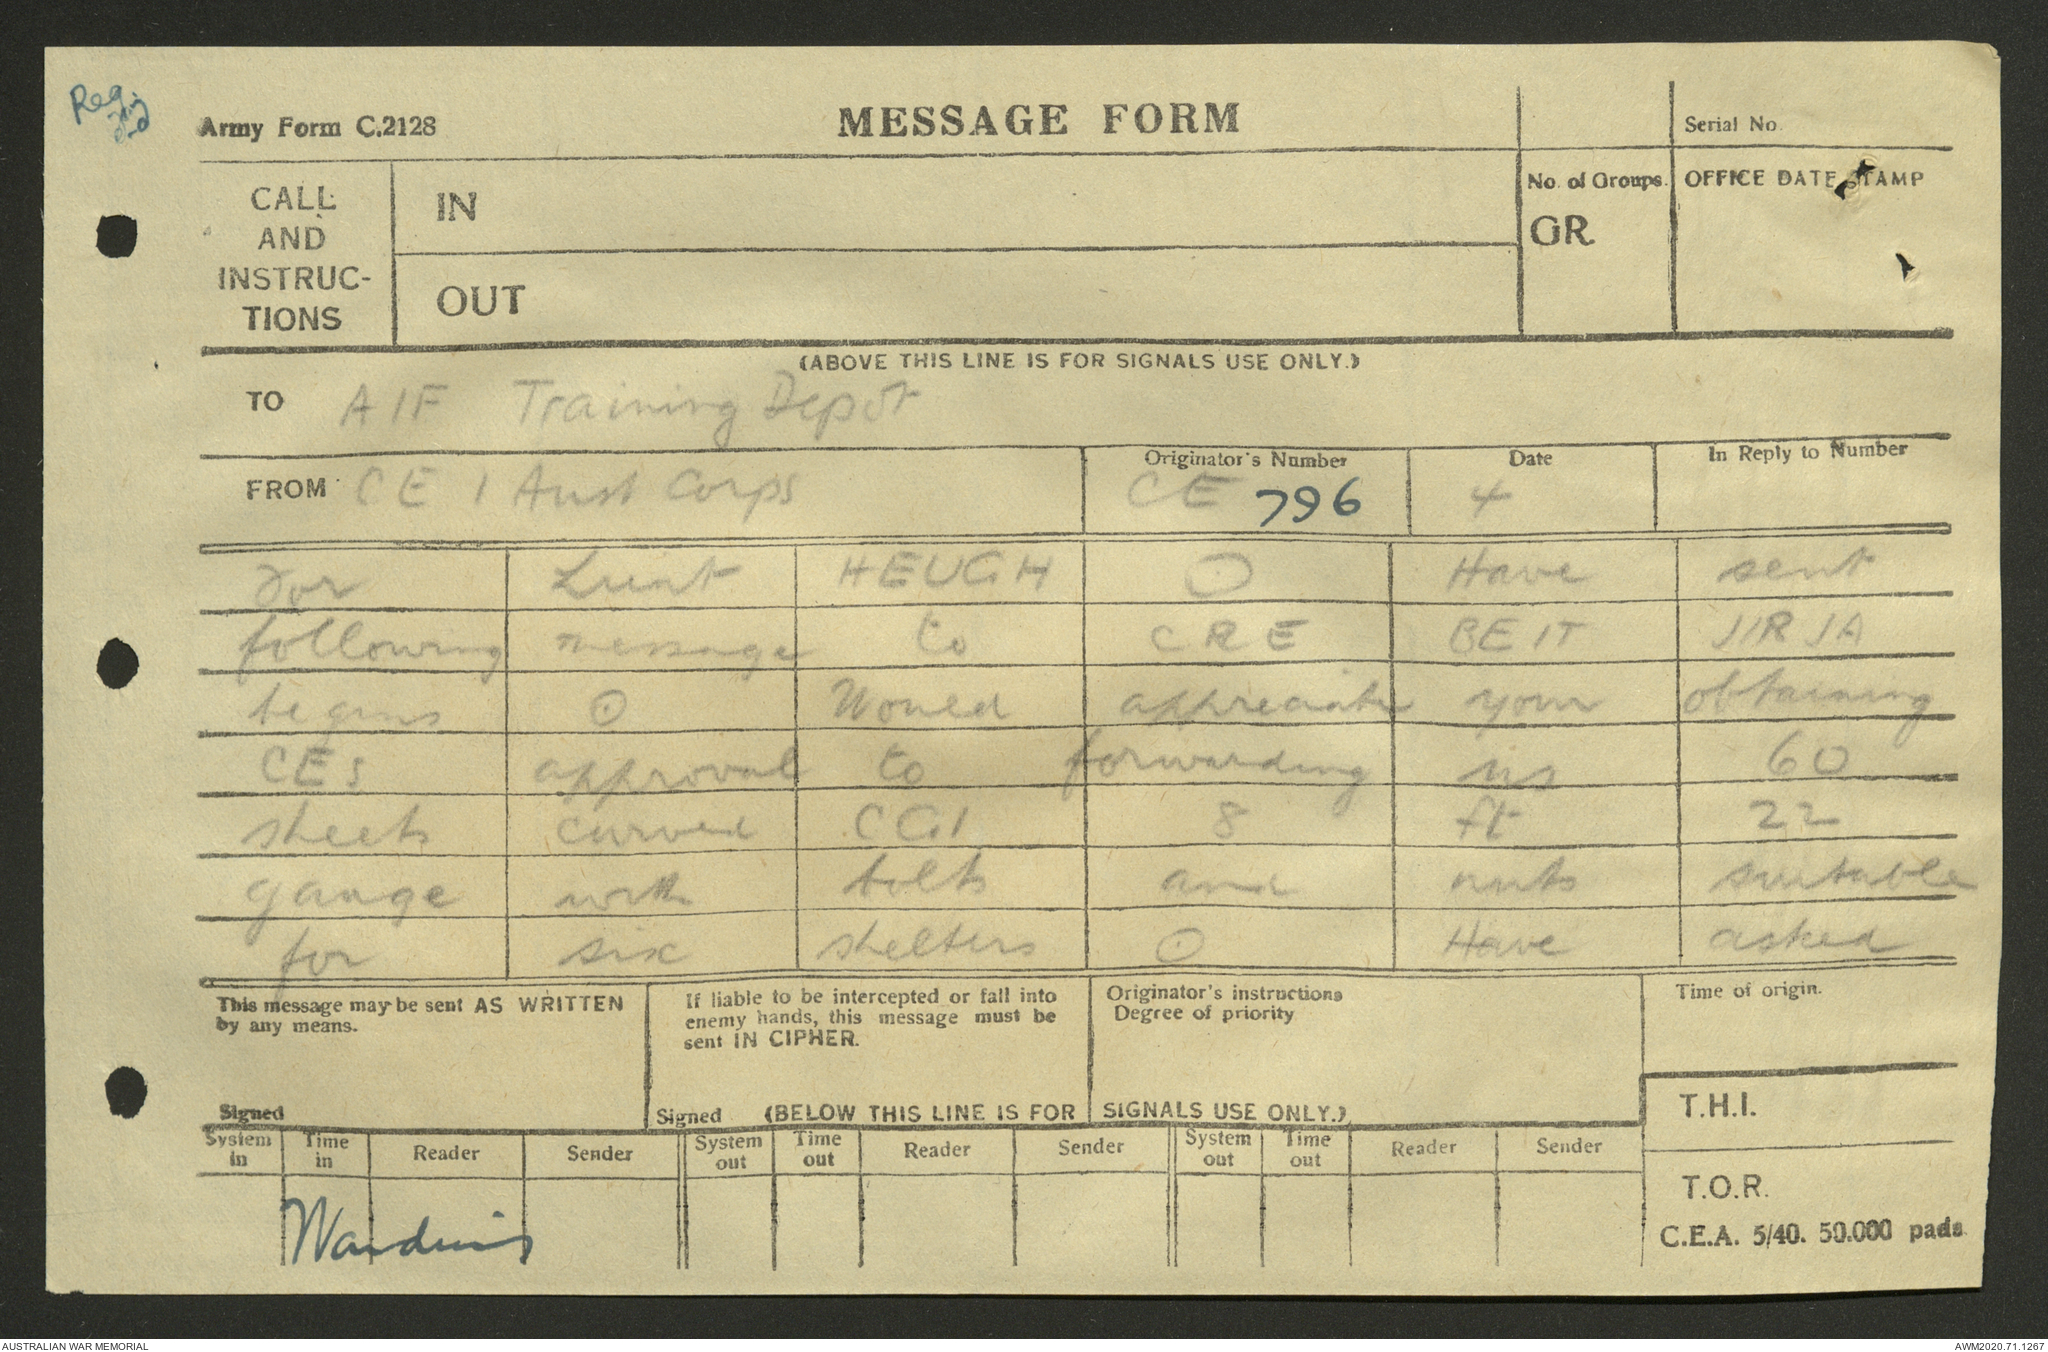 Army Form C.2128
MESSAGE FORM
Serial No.
CALL AND INSTRUC-TIONS
IN
OUT
No. of Groups.
GR.
OFFICE DATE STAMP
(ABOVE THIS LINE IS FOR SIGNALS USE ONLY.)
TO AIF Training Depot
FROM CE 1 Aust Corps
Originator's Number CE 796
Date 4
In Reply to Number
For Lieut HEUGH ⊙ Have sent
following message to CRE BEIT JIRJA
begins ⊙ Would appreciate your obtaining
CEs approval to forwarding us 60
sheets curved CGI 8 ft 22
gauge with bolts and nuts suitable
for six shelters ⊙ Have asked
This message may be sent AS WRITTEN
by any means.
Signed
If liable to be intercepted or fall into
enemy hands, this message must be
sent IN CIPHER.
Signed
Originator's instructions
Degree of priority
Time of origin.
(BELOW THIS LINE IS FOR SIGNALS USE ONLY.)
T.H.I.
System in Time in Reader Sender System out Time out Reader Sender System out Time out Reader Sender
T.O.R.
C.E.A. 5/40. 50.000 pads
AUSTRALIAN WAR MEMORIAL
AWM2020.71.1267